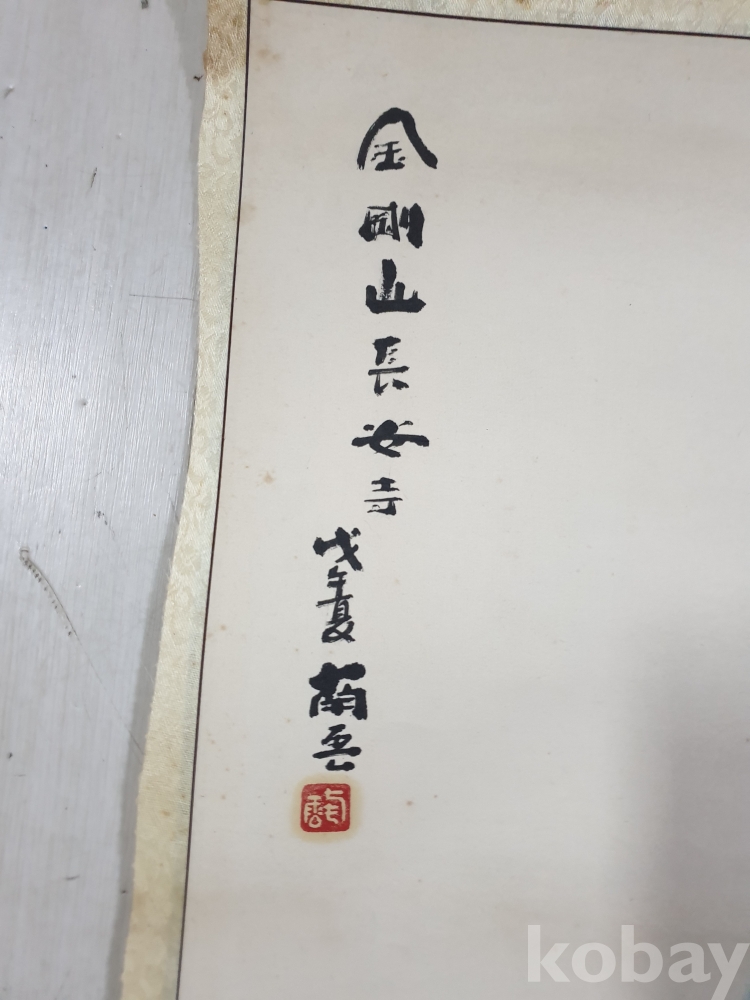 金剛山長安寺
戊午夏 南雲
kobay